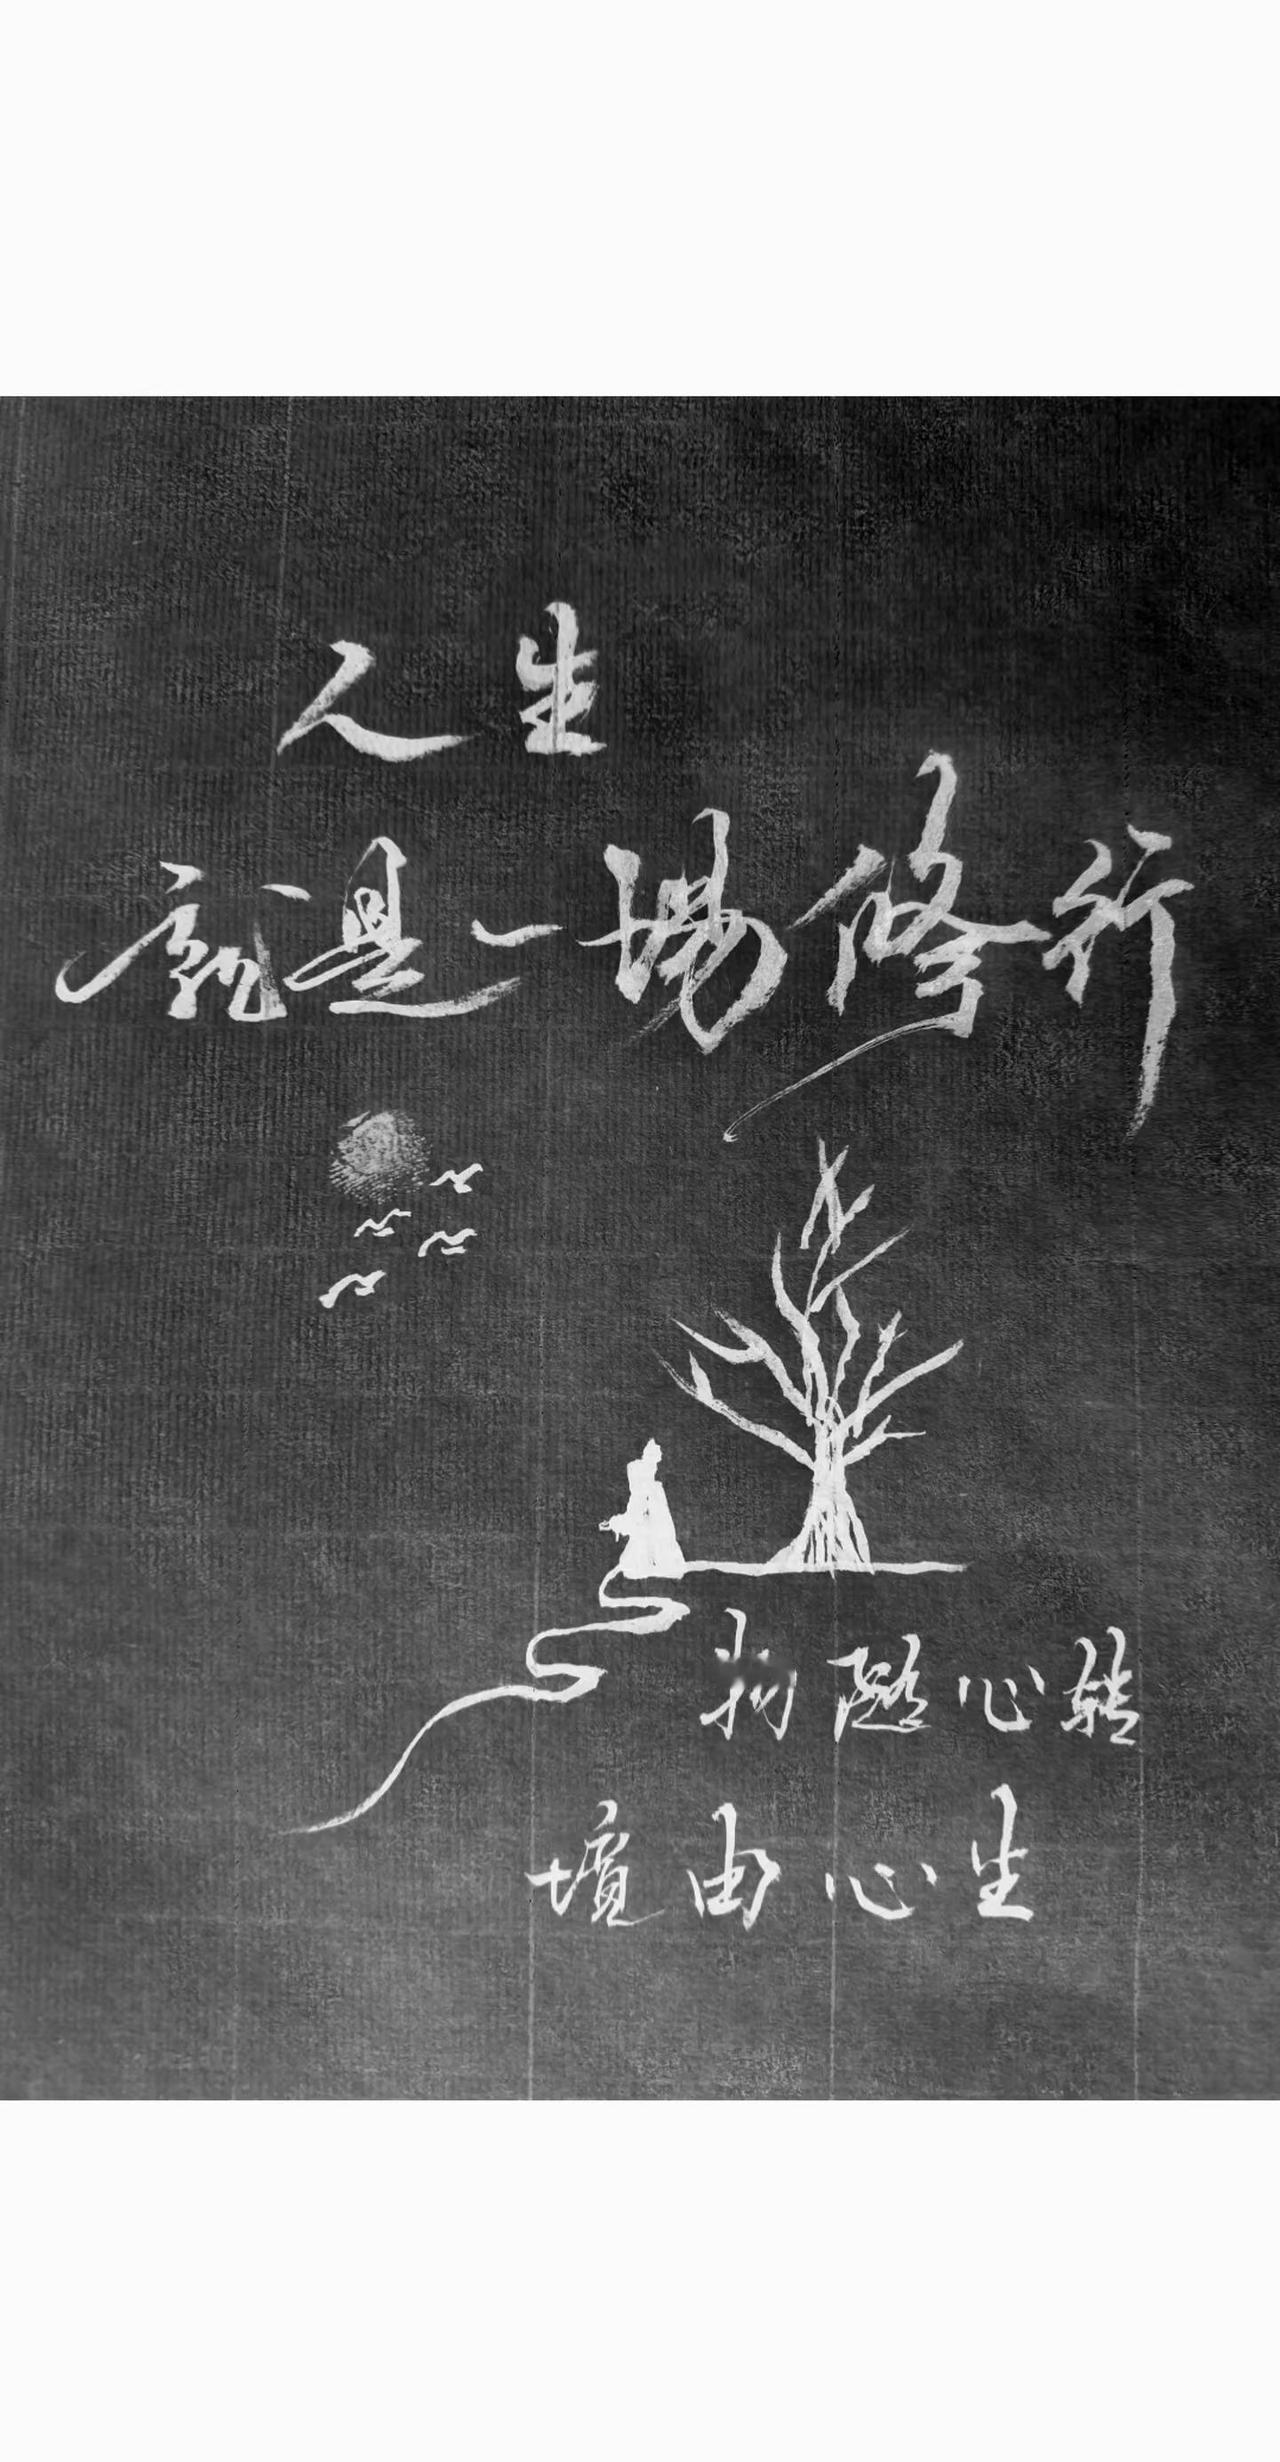 人生
就是一场修行
物随心转
境由心生